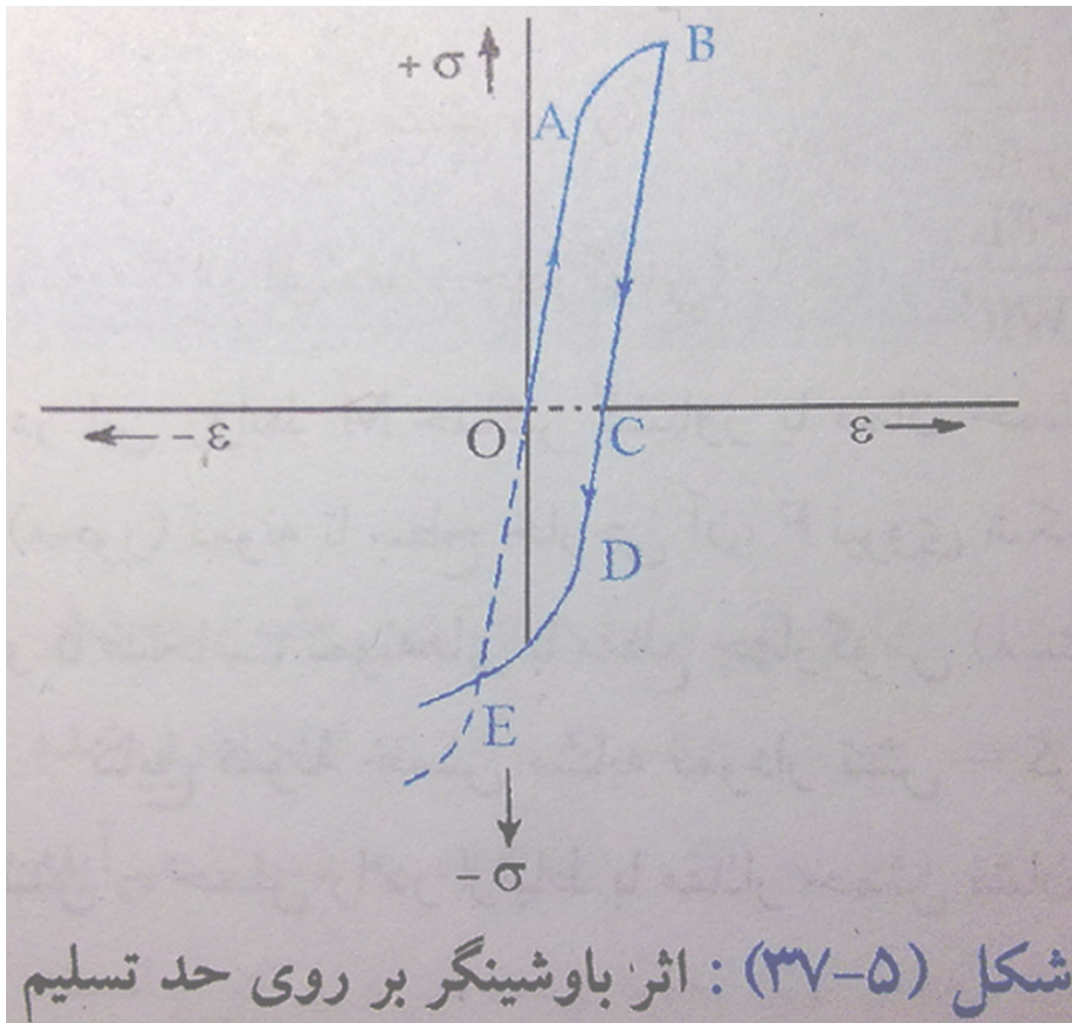 +σ
B
A
-ε
O
C
ε
D
E
-σ
شکل (۵-۳۷) : اثر باوشینگر بر روی حد تسلیم